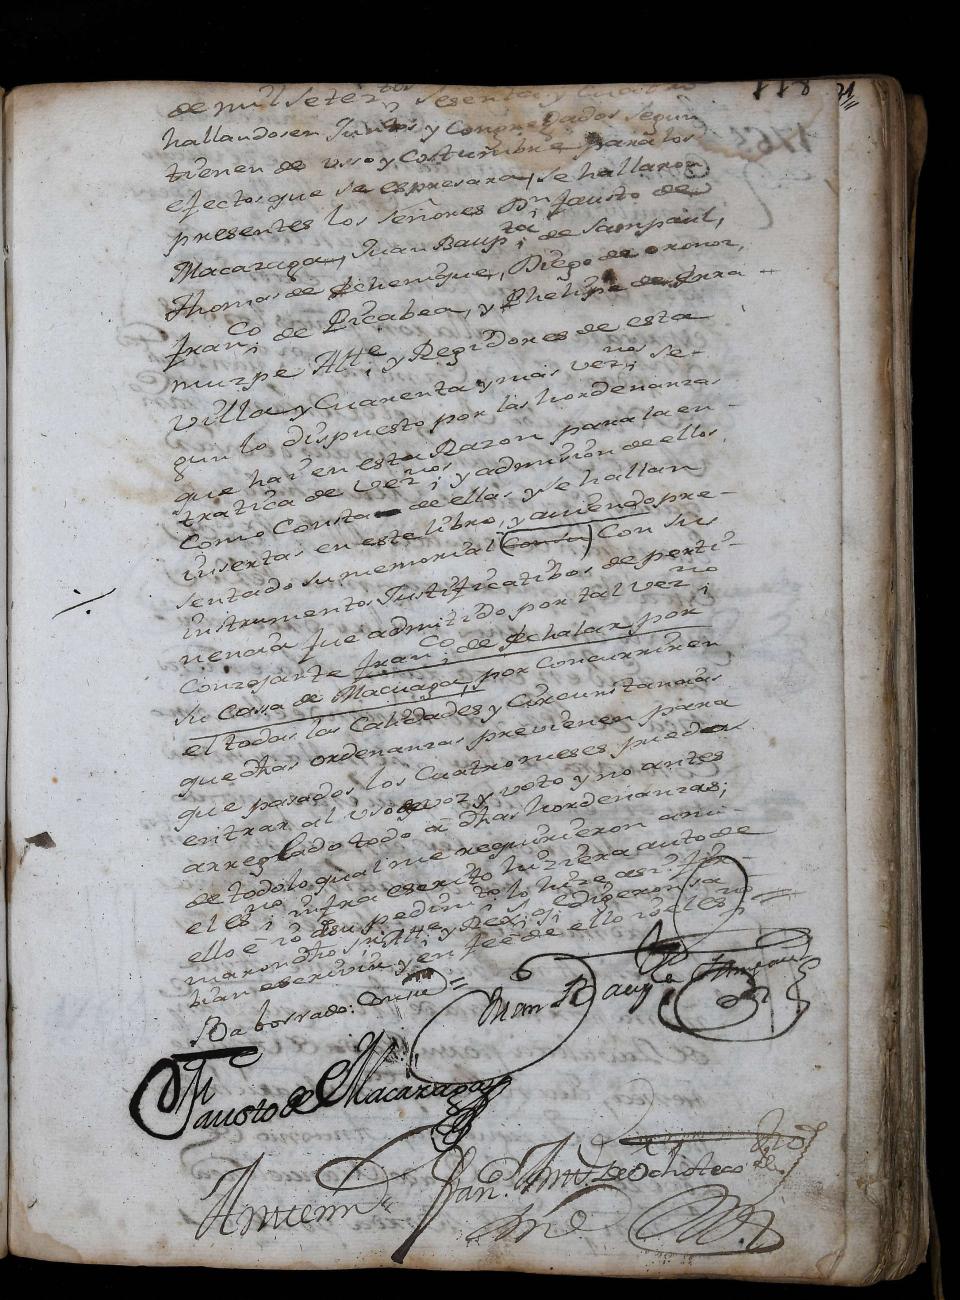 118 21
de mil setez.tos sesenta y Cuatro
hallandosen Juntos y Congregados segun
tienen de usso y Costumbre para los
efectos que se espresara, se hallaron
presentes los señores Dn fausto de
Macazaga, Juan Baup.ta de Sampaul,
Thomas de Echenique, Diego de oronoz,
fran.co de Picabea, y Phelipe de Yra
murpe Alt.e y Regidores de esta
villa y Cuarenta y mas vez.nos se-
gun lo dispuesto por las hordenanzas
que hay en esta Razon para la en-
tratica de vez.nos y admision de ellos
Como Consta de ellas y se hallan
insertas en este libro, y aviendo pre-
sentado su memorial Con sus
instrumentos Justificatibos de perti-
nencia fue admitido por tal vez.no
Conzejante fran.co de Echalar, por
su Casa de Macuaga, por Concurrir en
el todas las Calidades y Circunstancias
que dhas ordenanzas previenen para
que pasados los Cuatro meses pueda
entrar al uso de voz y voto y no antes
arreglado todo a dhas hordenanzas;
de todo lo qual me requirieron a mi
el es.no infra escrito hiziera auto de
ello e yo a su pedim.to lo hize asi, fir-
maron dhos sres Alt.e y Rex.s q dixeron sa
bian escrivir y en fee de ello yo el es.no =
Ba borrado: Consu =
Juan Baup.ta Sampaul
Fausto de Macazaga
Antemi
Fran.co Ant.o de Ochoteco